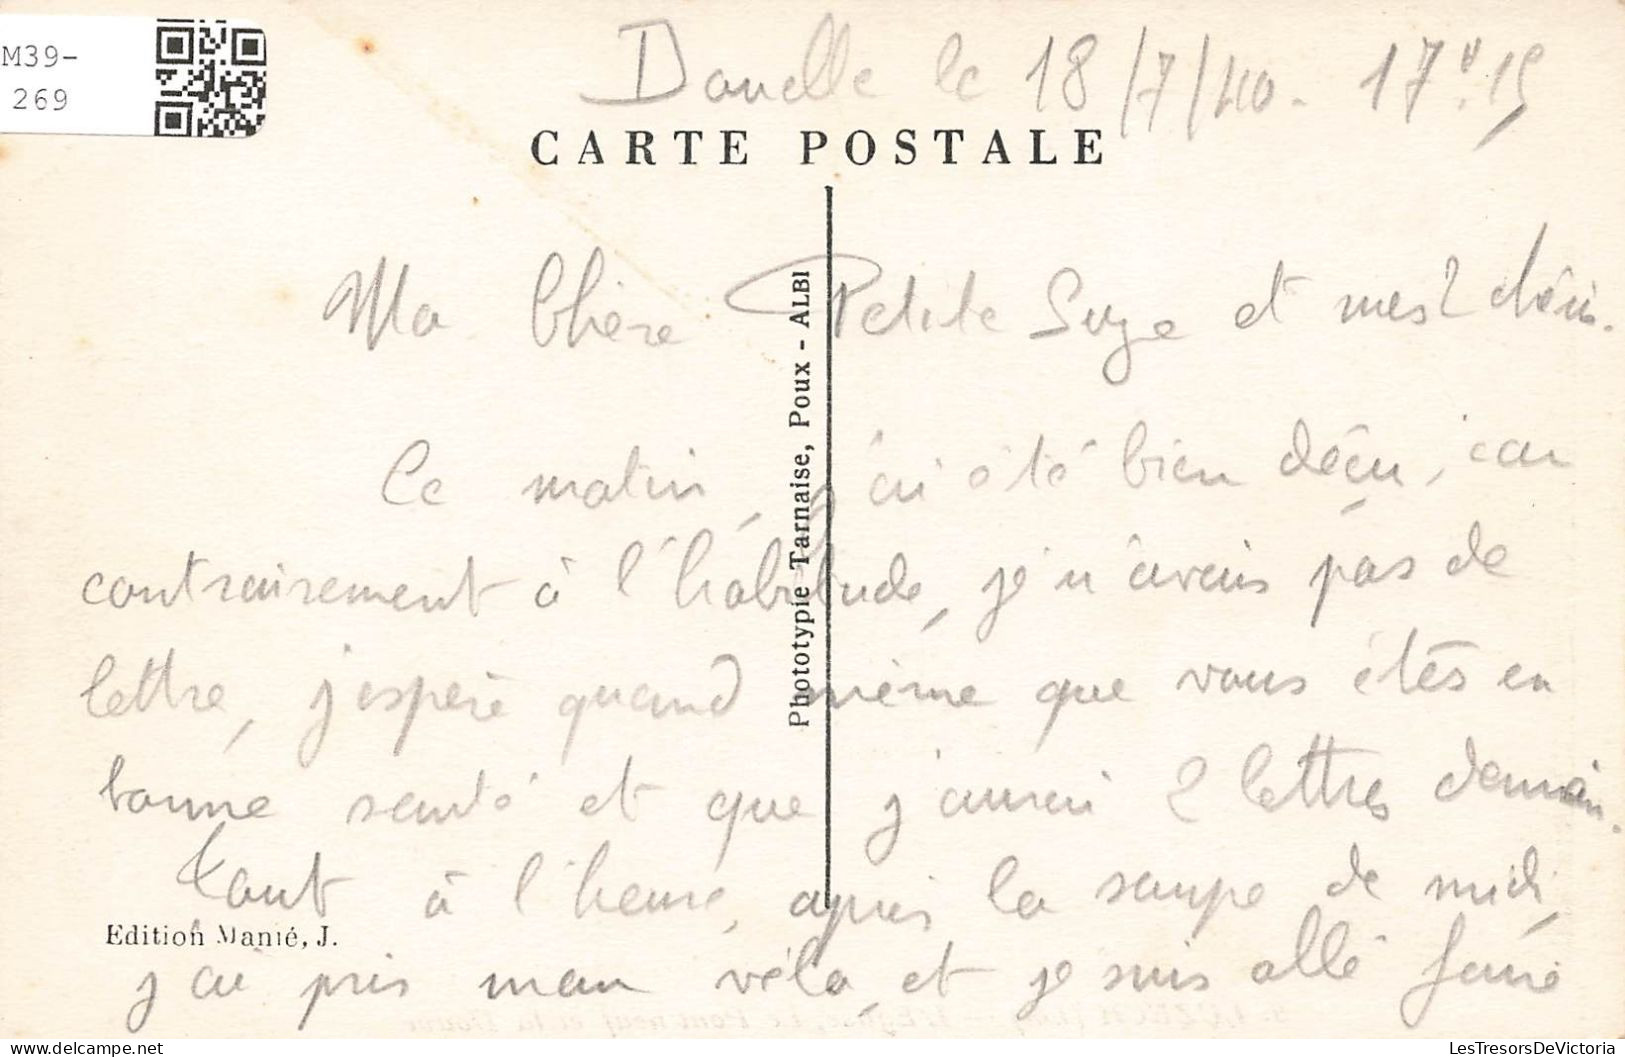 M39-
269
Douelle le 18/7/40. 17h.15
CARTE POSTALE
Ma Chère Petite Suze et mes 2 chéris.
Ce matin, j'ai été bien déçu, car
contrairement à l'habitude, je n'avais pas de
lettre, j'espère quand même que vous êtes en
bonne santé et que j'aurai 2 lettres demain.
Tout à l'heure, après la soupe de midi,
j'ai pris mon vélo, et je suis allé faire
Phototypie Tarnaise, Poux - ALBI
Edition Manié, J.
LesTresorsDeVictoria.com